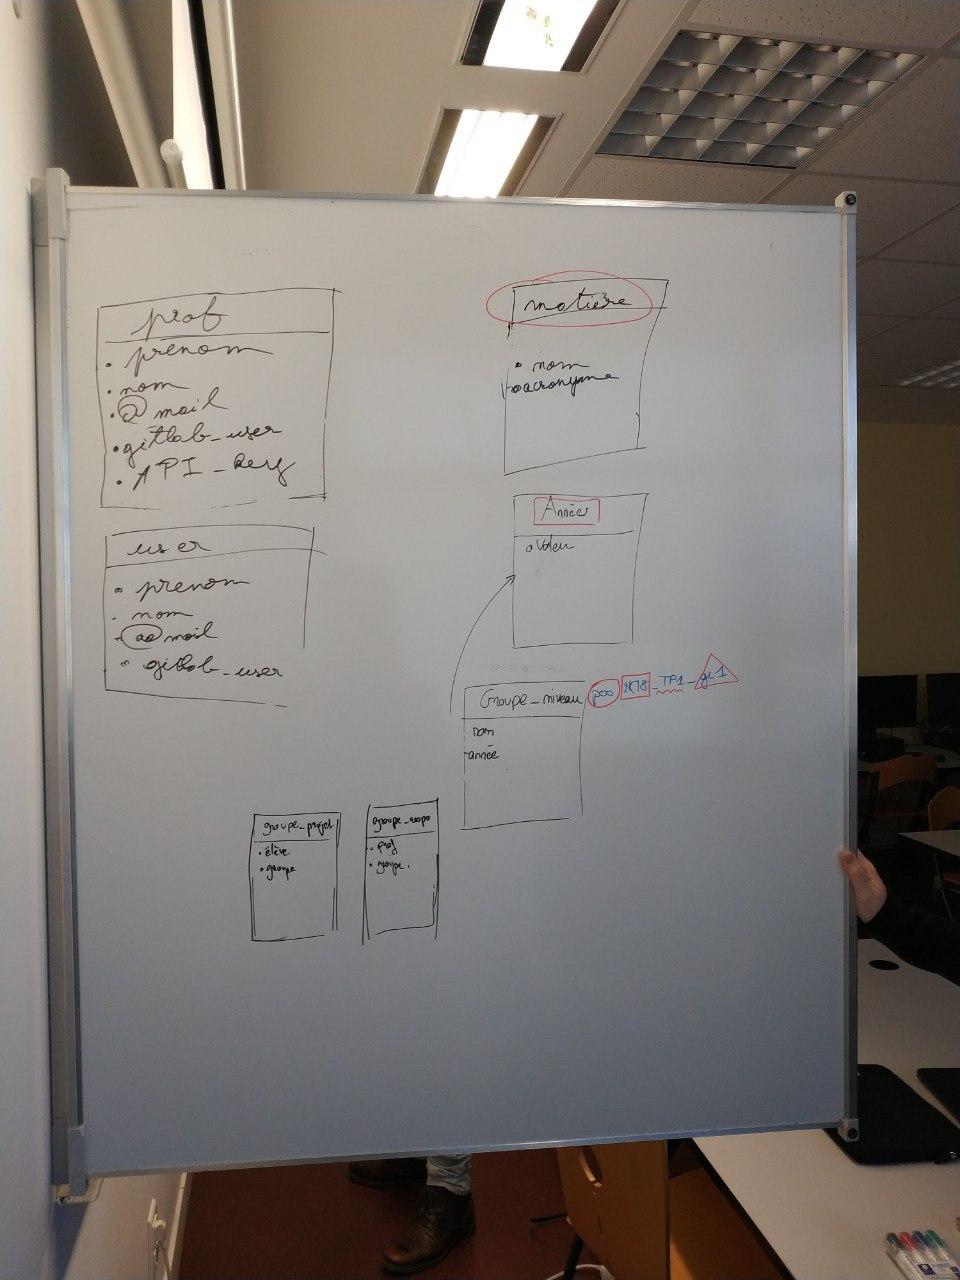 prof
prenom
nom
@ mail
gitlab_user
API_Key
user
prenom
nom
mail
gitlab_user
matière
nom
acronyme
Année
Groupe_niveau
nom
année
poo
TP1
groupe_projet
élève
groupe
prof
groupe